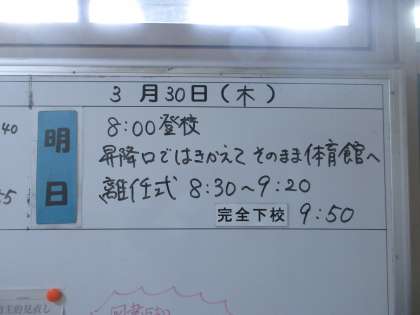 3 月30日(木)
明日
8:00登校
昇降口ではきかえて そのまま体育館へ
離任式 8:30～9:20
完全下校 9:50
40